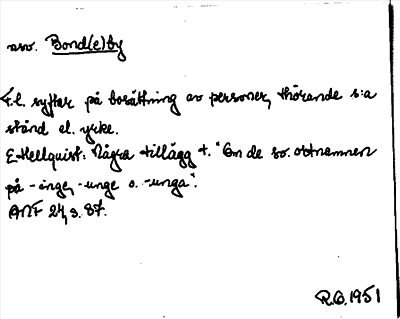 nsv. Bond(e)by
F.l. syftar på bosättning av personer, tillhörande s:a
stånd el. yrke.
E. Hellquist: Några tillägg t. "Om de sv. ortnamnen
på -inge, -unge o. -unga".
ANF 24, s. 87.
R.O. 1951